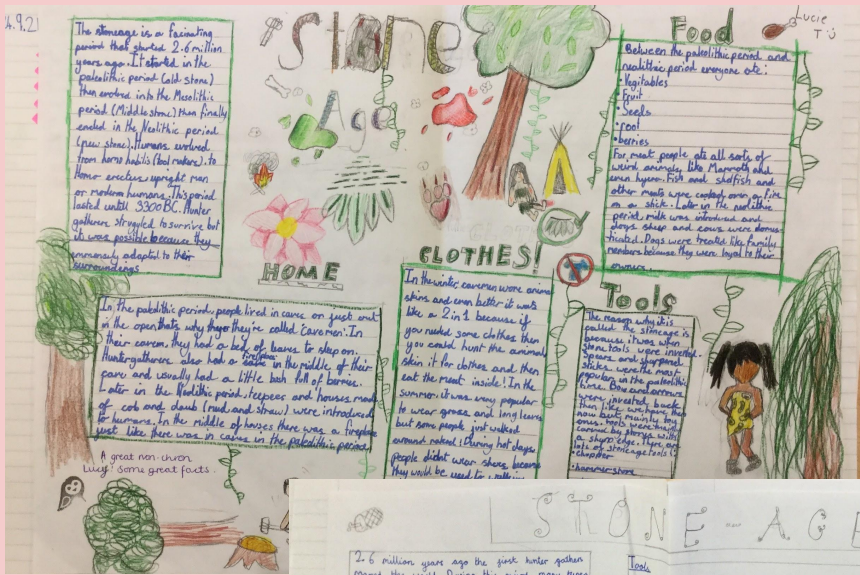 4.9.21
The stoneage is a facinating
period that started 2.6 million
years ago. It started in the
paleolithic period (old stone)
then evolved into the Mesolithic
period (Middle stone) then finally
ended in the Neolithic period
(new stone). Humans evolved
from homo habilis (tool makers), to
Homo erectus upright man
or modern humans. This period
lasted until 3300 BC. Hunter
gatherers struggled to survive but
it was possible because they
immensly adapted to their
surroundings
Stone
Age
Food
Lucie
T
Between the paleolithic period and
nealithic period everyone ate:
• Vegitables
Fruit
Seeds
• root
• berries
For meat people ate all sorts of
weird animals like Mammoth and
even hyero. Fish and shelfish and
other meats were cooked over a fire
on a stick. Later in the neolithic
period milk was introduced and
dogs sheep and cows were domus-
ticated. Dogs were treated like family
members because they were loyal to their
owners.
HOME
In the paleolithic period, people lived in caves or just out
in the open thats why they're called 'cavemen'. In
their cavern, they had a bed of leaves to sleep on.
Huntergatherers also had a fireplace in the middle of their
cave and usually had a little bush full of berries.
Later in the Neolithic period, teepees and houses made
of cob and daub (mud and straw) were introduced
to humans. In the middle of houses there was a fireplace
just like there was in caves in the paleolithic period.
A great non-chron
Lucy! Some great facts.
CLOTHES!
In the winter, cavemen wore animal
skins and even better it was
like a 2 in 1 because if
you needed some clothes then
you could hunt the animal
skin it for clothes and then
eat the meat inside! In the
summer it was very popular
to wear grass and long leaves
but some people just walked
around naked! During hot days
people didnt wear shoes because
they would be used to walking
Tools
The reason why it is
called the stoneage is
because it was when
stone tools were invented.
Spears and sharpened
sticks were the most
popular in the paleolithic
times. Bow and arrows
were invented back
then like we have them
now but mainly toy
ones. tools were
carved by stones with
a sharp edge. Theres are
lots of stoneage tools
• chopper
• hammerstone
STONE-AGE
2.6 million years ago the first hunter gathers
Tools